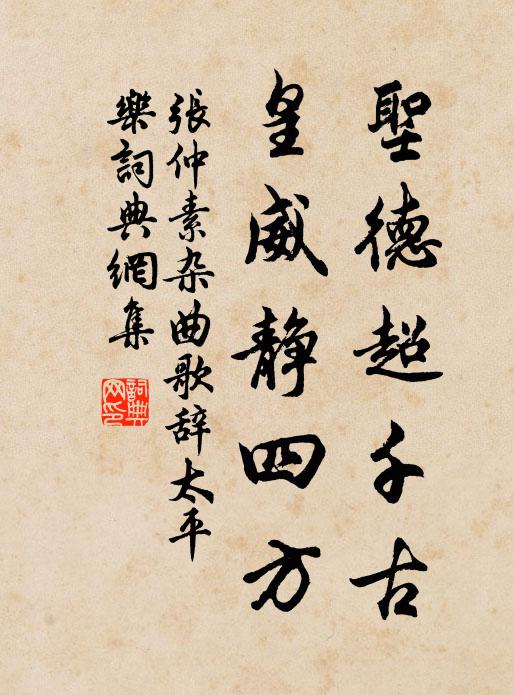 聖德超千古
皇威靜四方
張仲素杂曲歌辞太平
樂詞典網集
詞典網印